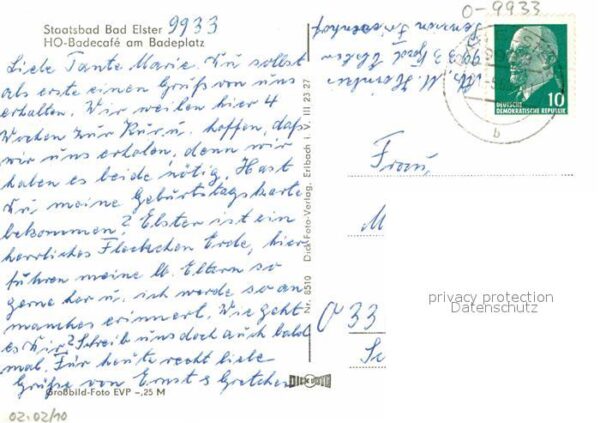 Staatsbad Bad Elster 9933
HO-Badecafé am Badeplatz
Liebe Tante Marie. Du sollst
als erste einen Gruß von uns
erhalten. Wir weilen hier 4
Wochen zur Kur u. hoffen, daß
wir uns erholen, denn wir
haben es beide nötig. Hast
Du meine Geburtstagskarte
bekommen? Elster ist ein
herrliches Fleckchen Erde, hier
fuhren meine lb. Eltern so
gerne her u. ich werde so an
manches erinnert. Wie geht
es Dir? Schreib uns doch auch bald
mal. Für heute recht liebe
Grüße von Ernst & Gretchen
Großbild-Foto EVP -,25 M
02.02/10
Dick-Foto-Verlag, Erlbach i. V. III 23 27
Nr. 8510
DICK FOTO
0-9933
9933 Bad Elster
10
DEUTSCHE
DEMOKRATISCHE REPUBLIK
b
Frau
M
privacy protection
Datenschutz
33